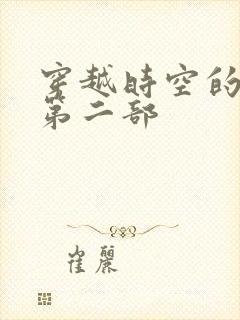 穿越時空的
第二部
崔麗